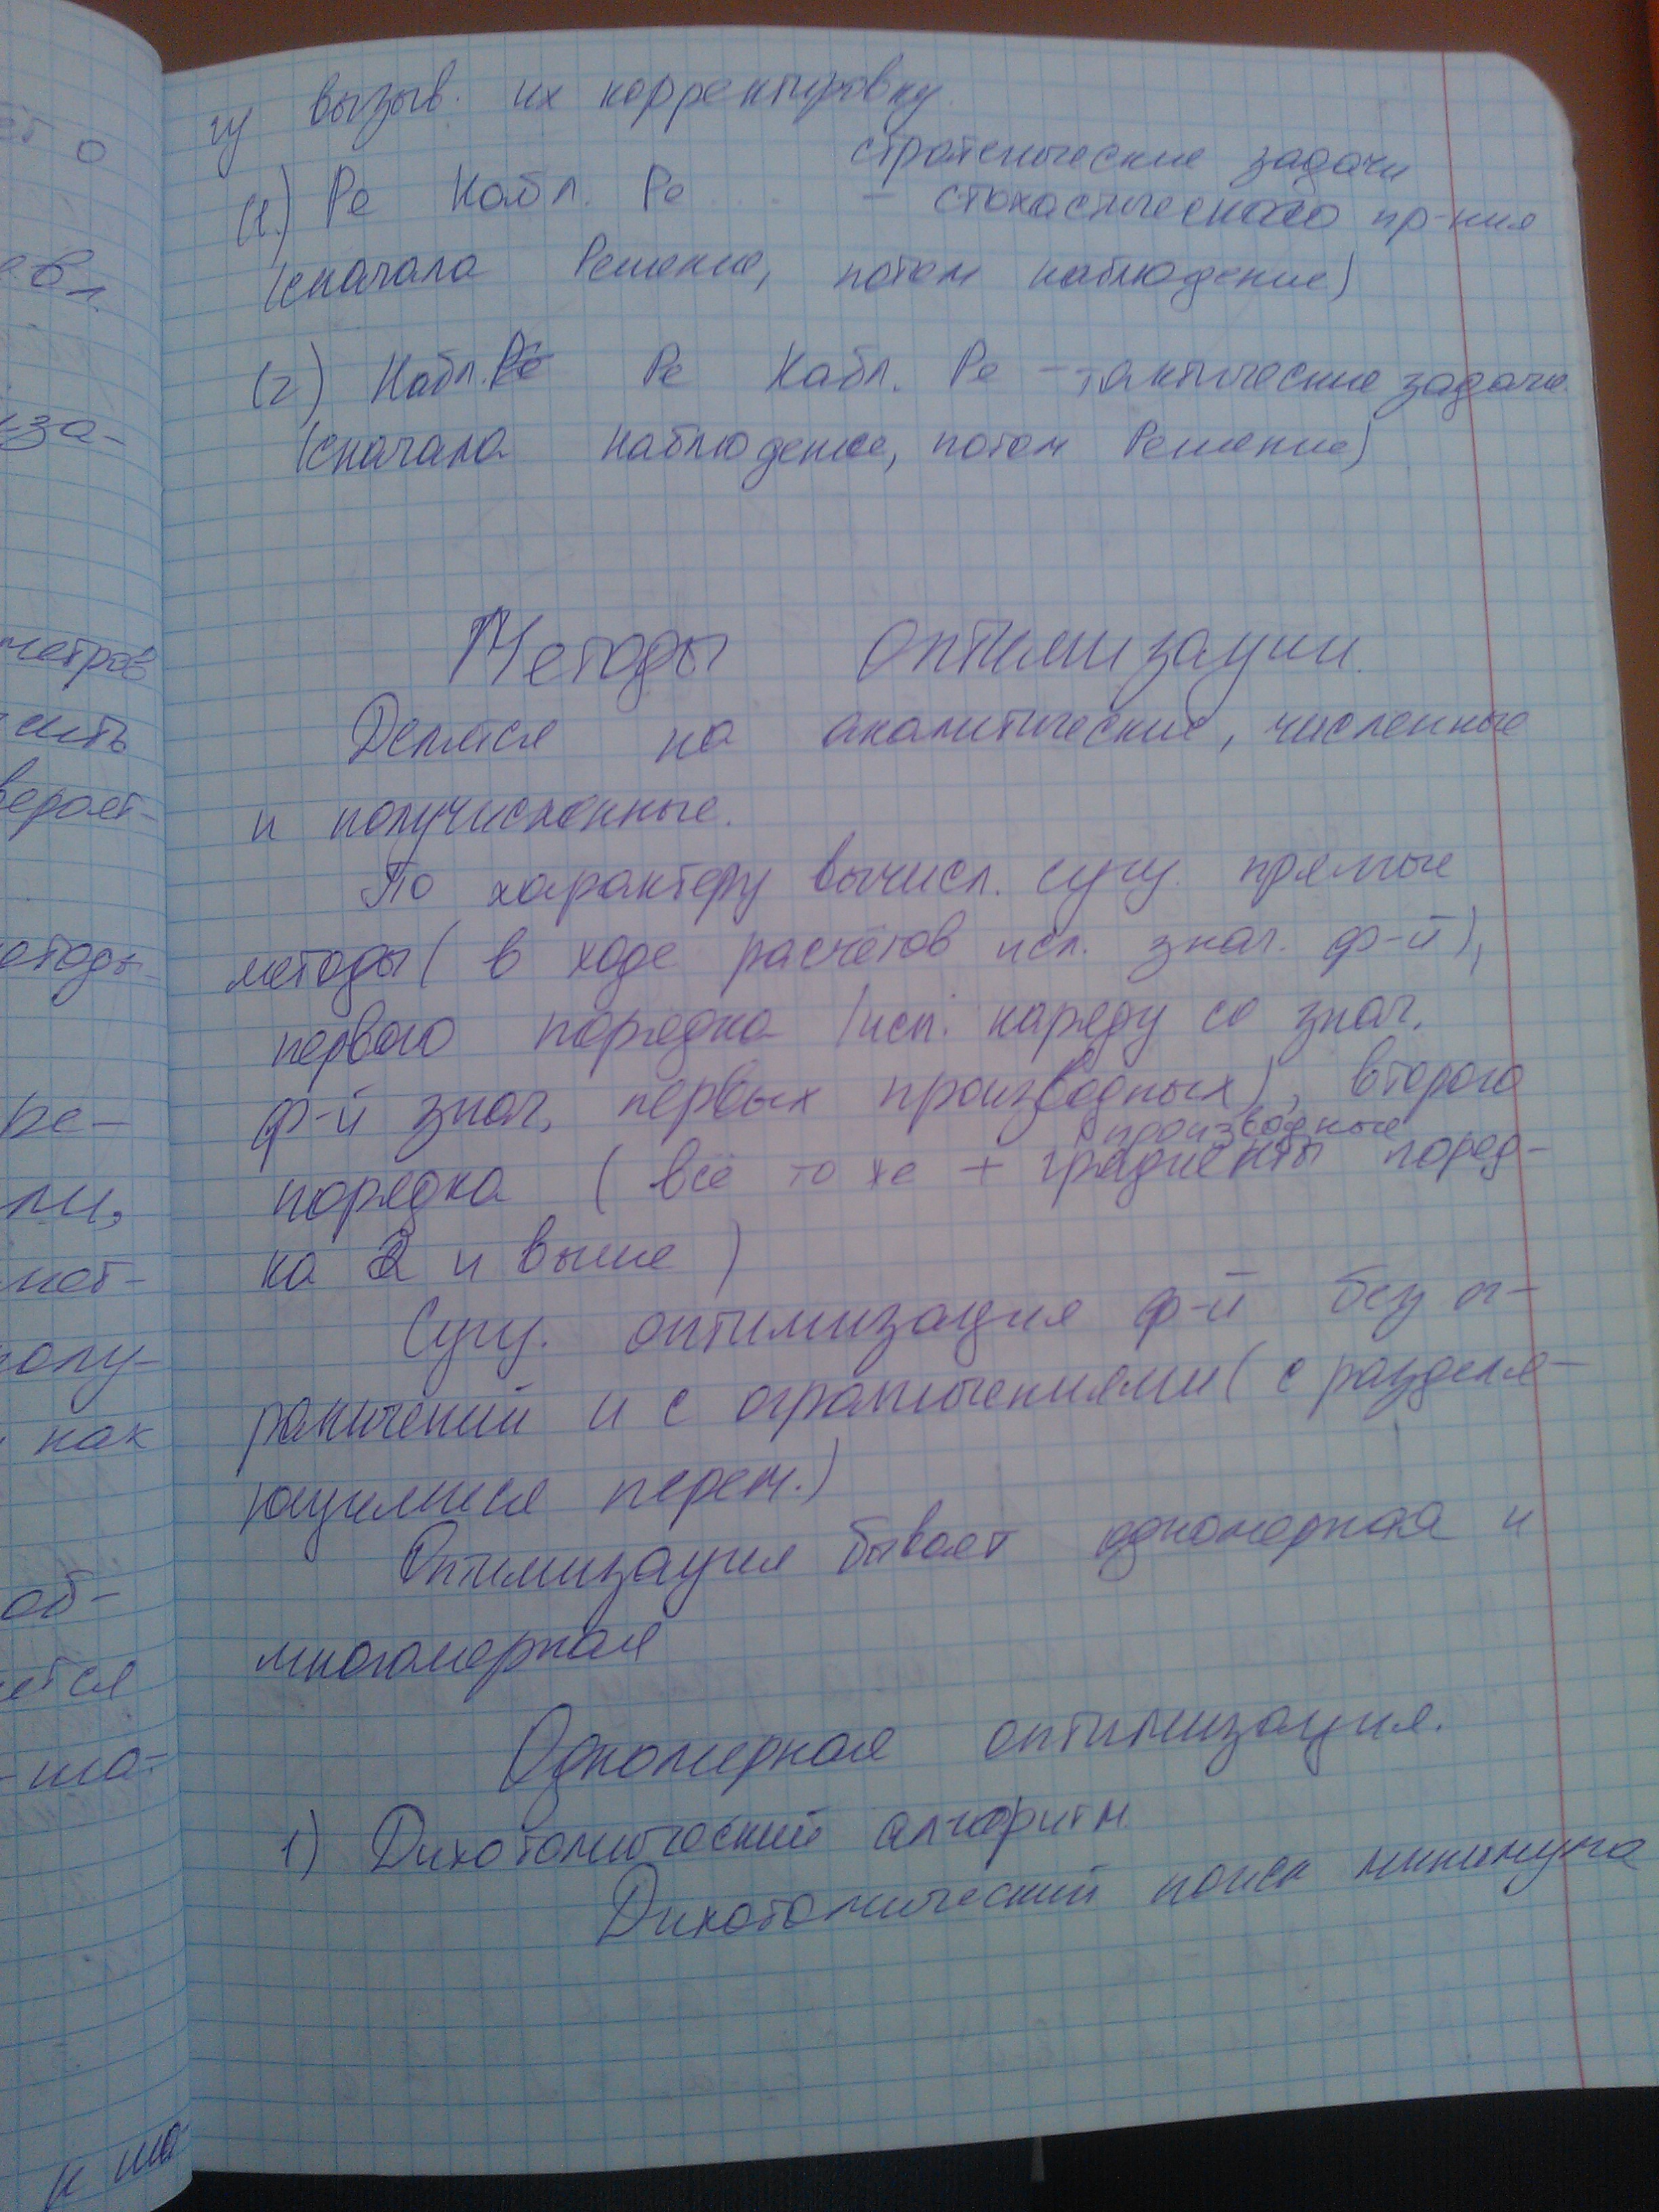 гу вызыв. их корректировку.
стратегические задачи
(1.) Ре Набл. Ре .... – стохастического пр-ния
(сначала Решение, потом наблюдение)
(2) Набл. Ре Набл. Ре – тактические задачи
(сначала наблюдение, потом Решение)
Методы оптимизации.
Делятся на аналитические, численные
и получисленные.
По характеру вычисл. сущ. прямые
методы ( в ходе расчётов исп. знач. ф-й),
первого порядка (исп. наряду со знач.
ф-й знач. первых производных), второго
производные
порядка ( всё то же + градиенты поряд-
ка 2 и выше )
Сущ. оптимизация ф-й без ог-
раничений и с ограничениями ( с разделя-
ющимися перем.)
Оптимизация бывает одномерная и
многомерная
Одномерная оптимизация.
1) Дихотомический алгоритм
Дихотомический поиск минимума
ет о
за-
метров
сить
вероят-
ре-
ли,
мет-
полу-
как
об-
ется
-ша-